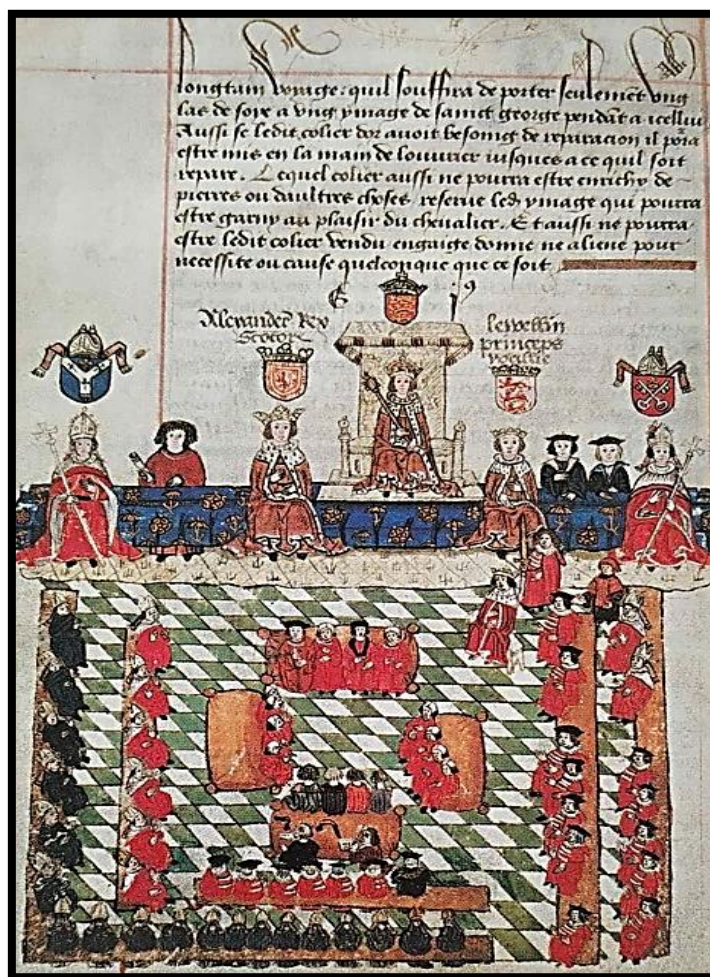 longtain voyage: quil souffira de porter seulemēt vng
las de soye a vng ymage de sainct george pendāt a icelluy
Aussi se ledit colier dor auoit besoing de reparacion il pora
estre mis en la main de louurier iusques a ce quil soit
repare. Lequel colier aussi ne pourra estre enrichy de
pierres ou daultres choses reserue led ymage qui pourra
estre garny au plaisir du cheualier. Et aussi ne pourra
estre ledit colier vendu engaige donne ne aliene pour
necessite ou cause quelconque que ce soit
E
Alexander Rex
Scotor
lewellin
princeps